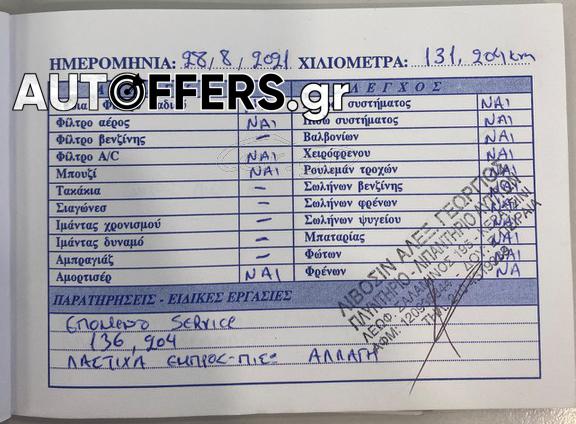 ΗΜΕΡΟΜΗΝΙΑ: 28/8/2021 ΧΙΛΙΟΜΕΤΡΑ: 131,204km
AUTOFFERS.gr
ΛΕΓΧΟΣ
συστήματος ΝΑΙ
Φίλτρο αέρος ΝΑΙ Πίσω συστήματος ΝΑΙ
Φίλτρο βενζίνης – Βαλβονίων ΝΑΙ
Φίλτρο A/C ΝΑΙ Χειρόφρενου ΝΑΙ
Μπουζί ΝΑΙ Ρουλεμάν τροχών ΝΑΙ
Τακάκια – Σωλήνων βενζίνης ΝΑΙ
Σιαγώνες – Σωλήνων φρένων ΝΑΙ
Ιμάντας χρονισμού – Σωλήνων ψυγείου ΝΑΙ
Ιμάντας δυναμό – Μπαταρίας ΝΑΙ
Αμπραγιάς – Φώτων ΝΑΙ
Αμορτισέρ ΝΑΙ Φρένων ΝΑ
ΠΑΡΑΤΗΡΗΣΕΙΣ - ΕΙΔΙΚΕΣ ΕΡΓΑΣΙΕΣ
ΕΠΟΜΕΝΟ SERVICE
136,204
ΛΑΣΤΙΧΑ ΕΜΠΡΟΣ-ΠΙΣΩ ΑΛΛΑΓΗ
ΛΙΒΟΣΙΝ ΑΛΕΞ. ΓΕΩΡΓΙΟΣ
ΠΛΥΝΤΗΡΙΟ - ΛΙΠΑΝΤΗΡΙΟ ΑΥΤ/ΤΩΝ
ΛΕΩΦ. ΣΑΛΑΜΙΝΟΣ 195 - ΚΕΡΑΤΣΙΝΙ